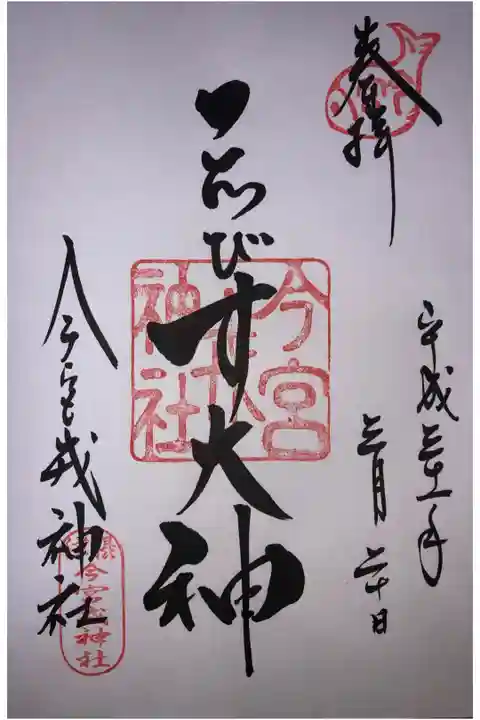 奉拝
平成三十一年
三月二十日
ゑびす大神
今宮
戎
神社
今宮戎神社
今宮戎神社